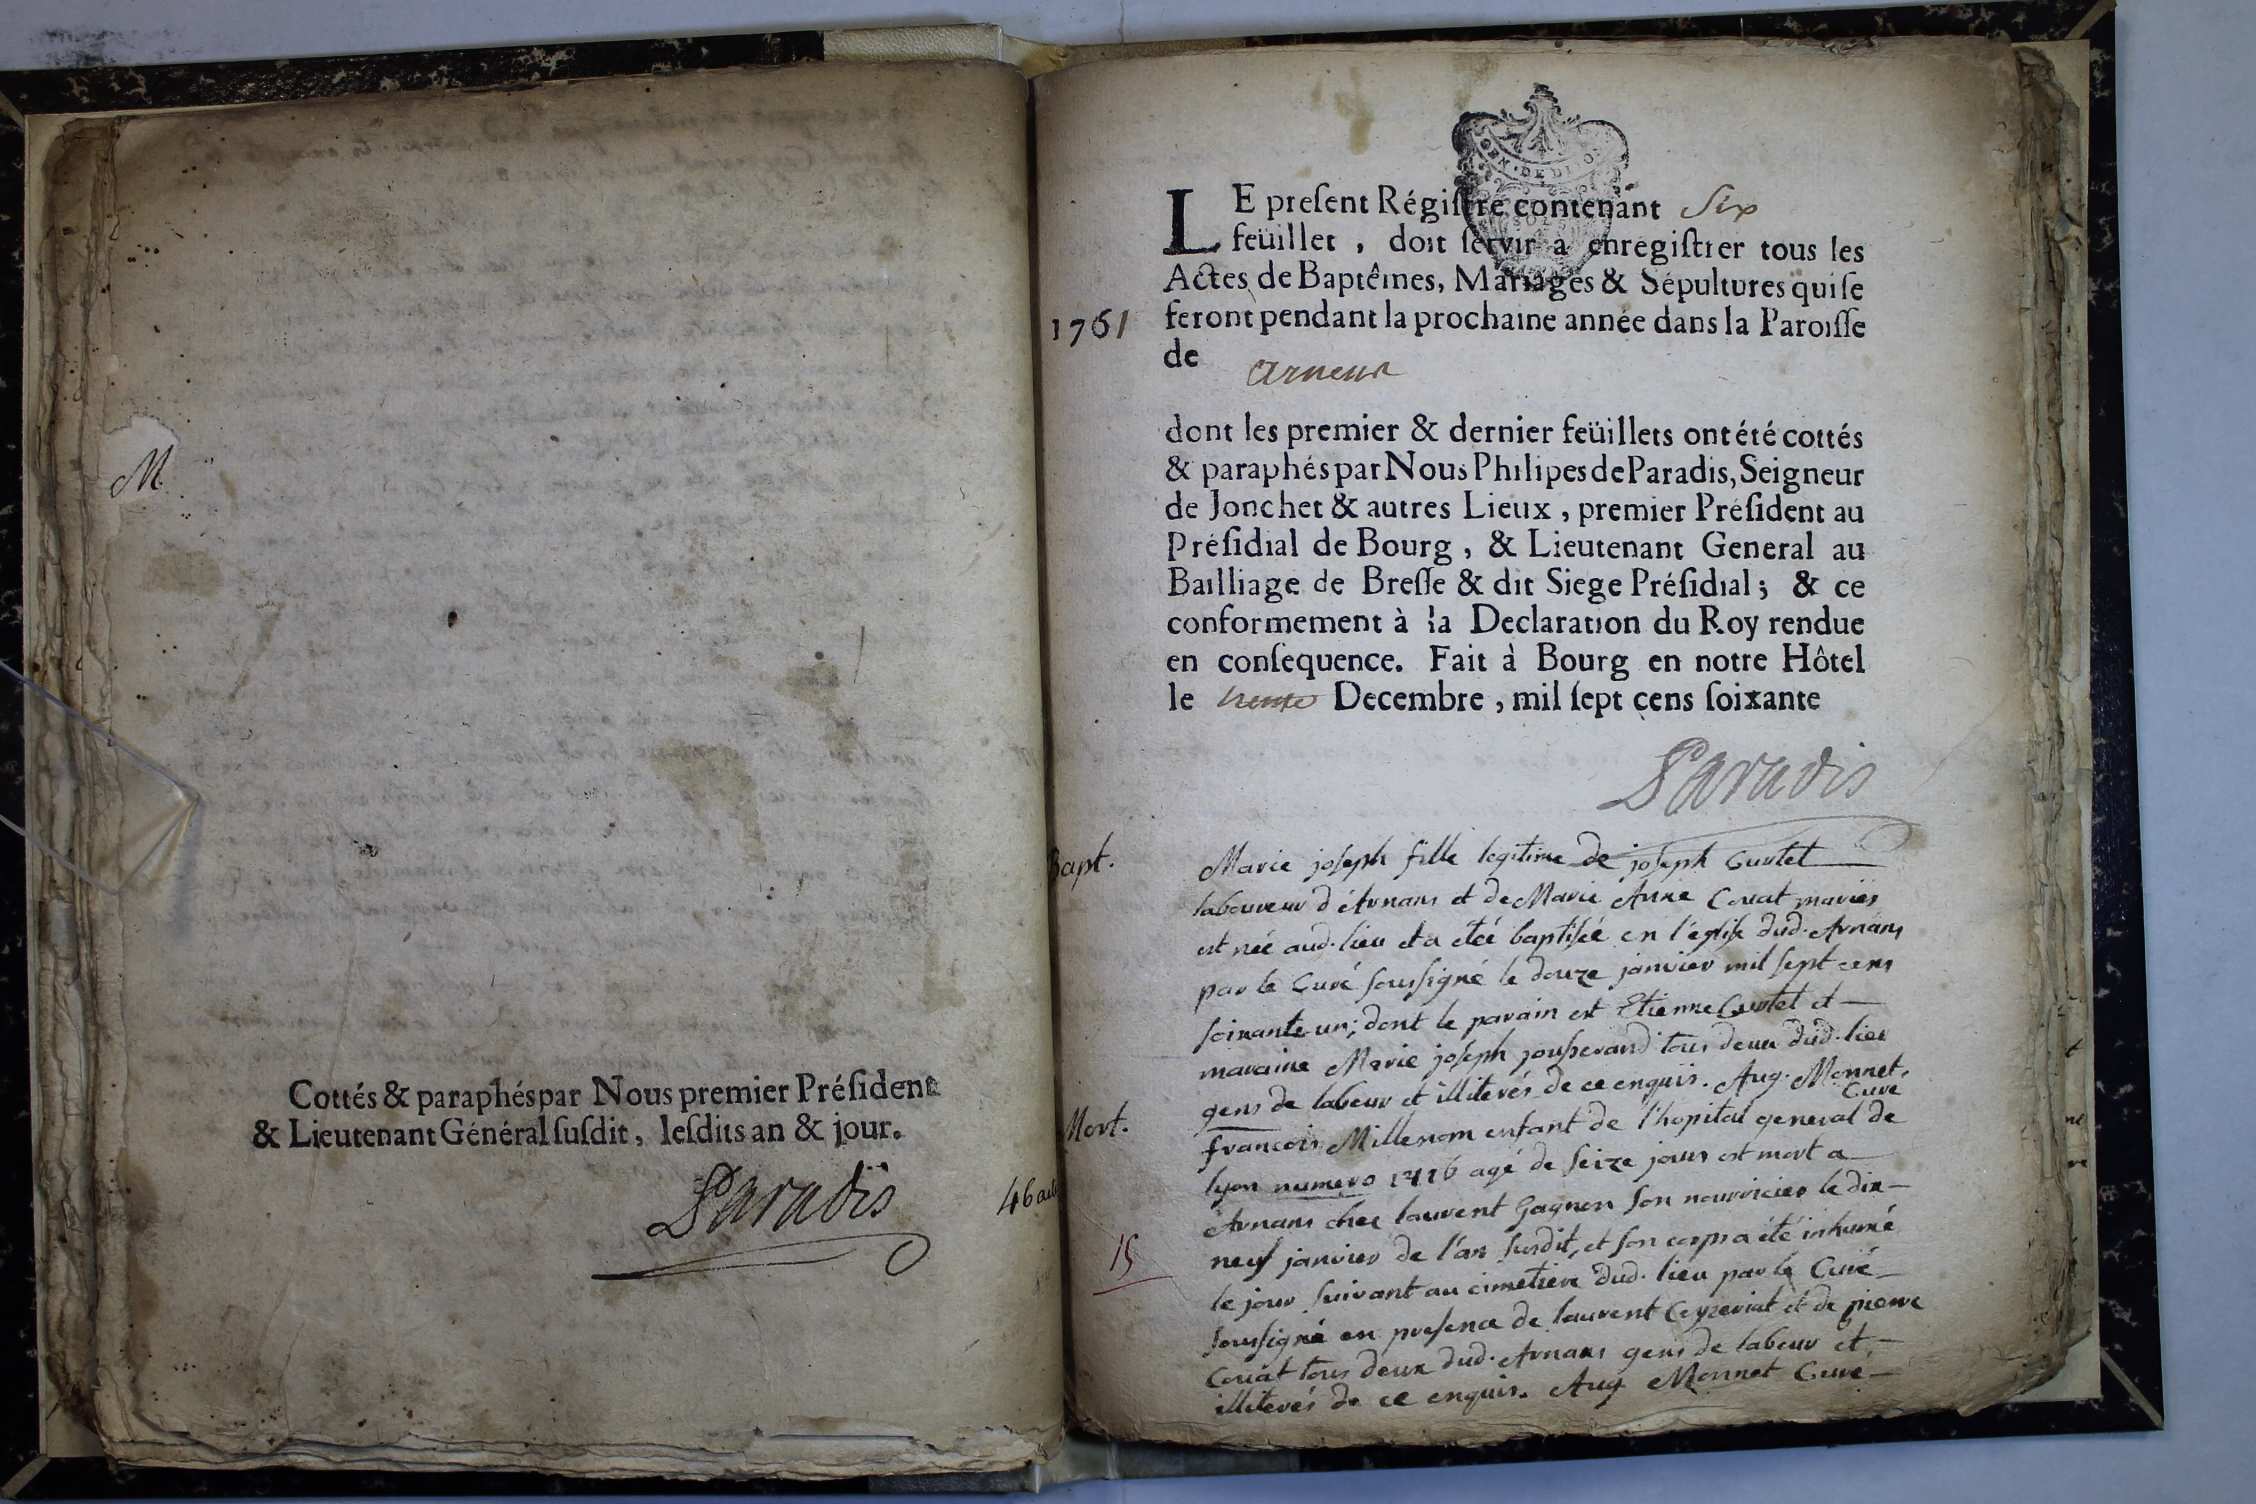 M
Cottés & paraphés par Nous premier Préſident
& Lieutenant Général ſuſdit, leſdits an & jour.
Paradis
46
GEN. DE DIJON
LE preſent Régiſtre contenant Six
feüillet, doit ſervir a enregiſtrer tous les
Actes de Baptêmes, Mariages & Sépultures qui ſe
1761
feront pendant la prochaine année dans la Paroiſſe
de
dont les premier & dernier feüillets ont été cottés
& paraphés par Nous Philipes de Paradis, Seigneur
de Jonchet & autres Lieux, premier Préſident au
Préſidial de Bourg, & Lieutenant General au
Bailliage de Breſſe & dit Siege Préſidial; & ce
conformement à la Declaration du Roy rendue
en conſequence. Fait à Bourg en notre Hôtel
le trente Decembre, mil ſept cens ſoixante
Paradis
Bapt.
Marie joseph fille legitime de joseph Curtet
laboureur d'Arnans et de Marie Anne Couat mariés
est née aud. lieu et a eteé baptisée en l'église dud. Arnans
par le Curé soussigné le douze janvier mil sept cens
soixante un; dont le parain est Etienne Curtet et
maraine Marie joseph jousserand tous deux dud. lieu
gens de labeur et illiterés de ce enquis. Aug. Monnet,
Curé
Mort.
francois Millenom enfant de l'hopital general de
lyon numero 1416 agé de seize jours est mort a
Arnans chez laurent Gagnon son nourricier le dix
neuf janvier de l'an susdit, et son corps a été inhumé
15
le jour suivant au cimetiere dud. lieu par le Curé
soussigné en presence de laurent Ceyzeriat et de pierre
Couat tous deux dud. Arnans gens de labeur et
illiterés de ce enquis. Aug Monnet Curé